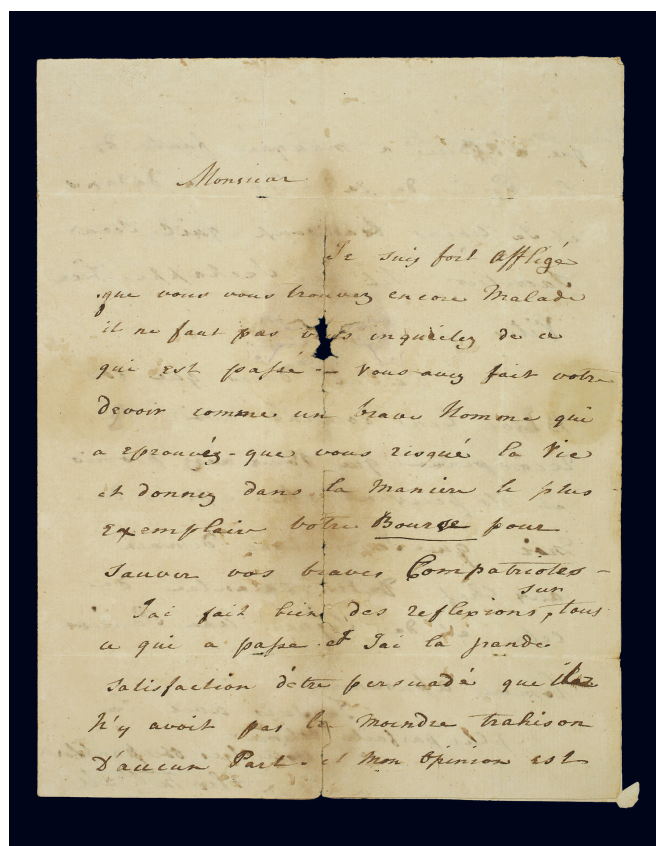 Monsieur
Je suis fort affligé
que vous vous trouvez encore Malade
il ne faut pas vous inquietez de ce
qui est passé – vous avez fait votre
devoir comme un brave Homme qui
a eprouvéz – que vous risqué la Vie
et donnez dans la Maniere le plus
Exemplaire votre Bourse pour
Sauver vos braves Compatriotes –
J'ai fait bien des reflexions, sur tous
ce qui a passe et J'ai la grande
Satisfaction d'etre persuadé que
N'y avoit pas la moindre trahison
D'aucun Part – et Mon Opinion est